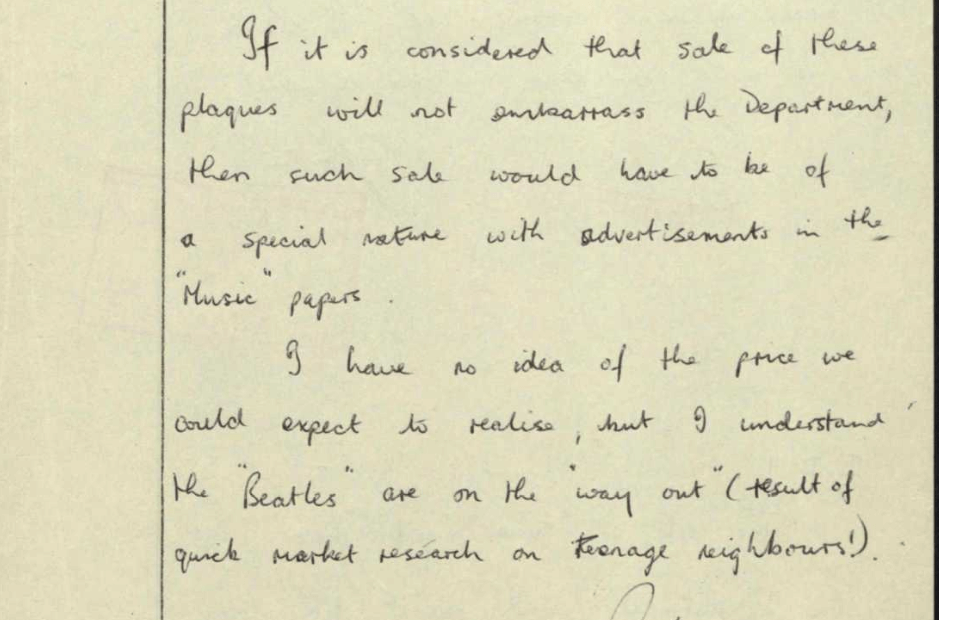 If it is considered that sale of these
plaques will not embarrass the Department,
then such sale would have to be of
a special nature with advertisements in the
"Music" papers.
I have no idea of the price we
could expect to realise, but I understand
the "Beatles" are on the "way out" (result of
quick market research on teenage neighbours!).